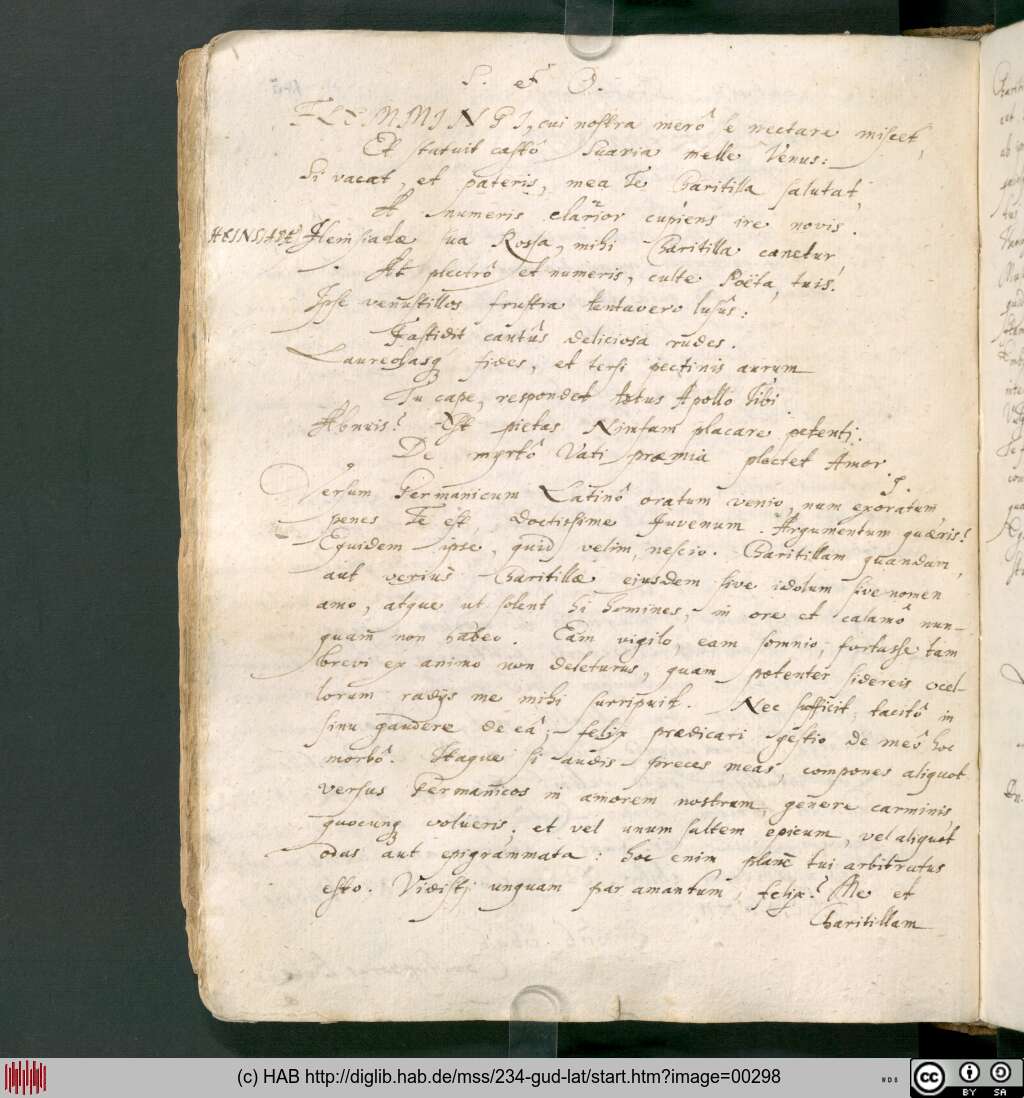 S. et O.
FLEMMINGI, cui nostra merô se nectare miscet,
Et statuit castô suavia melle Venus:
Si vacat, et pateris, mea Te Charitilla salutat,
A numeris clarior cupiens ire novis.
HEINSIADÆ Heinsiadæ sua Rossa, mihi Charitilla canetur
At plectrô et numeris, culte Poëta, tuis!
Ipse venustillos frustra tentavero lusûs:
Fastidit cantûs deliciosa rudes.
Laureolasq fides, et tersi pectinis aurum
Tu cape, respondet totus Apollo Tibi.
Abnuis? Est pietas Nimfam placare petenti.
De myrtô Vati præmia plectet Amor.
Versum Germanicum Latinô oratum venio, num exoratum,
penes Te est, doctissime Juvenum. Argumentum quæris?
Equidem ipse, quid velim, nescio. Charitillam quandam,
aut veriùs Charitillæ ejusdem sive idolum sive nomen
amo, atque ut solent hi homines, in ore et calamô nun-
quam non habeo. Eam vigilo, eam somnio; fortasse tam
brevi ex animo non deleturus, quam potenter sidereis ocel-
lorum radijs me mihi surripuit. Nec sufficit, tacitô in
sinu gaudere de eâ; felix prædicari gestio de meô hoc
morbô. Itaque si audis preces meas, compones aliquot
versus Germanicos in amorem nostrum, genere carminis
quocunq volueris; et vel unum saltem epicum, vel aliquot
odas aut epigrammata: hoc enim planè tui arbitratus
esto. Vidisti unquam par amantum, felix? Me et
Charitillam
(c) HAB http://diglib.hab.de/mss/234-gud-lat/start.htm?image=00298
cc BY SA